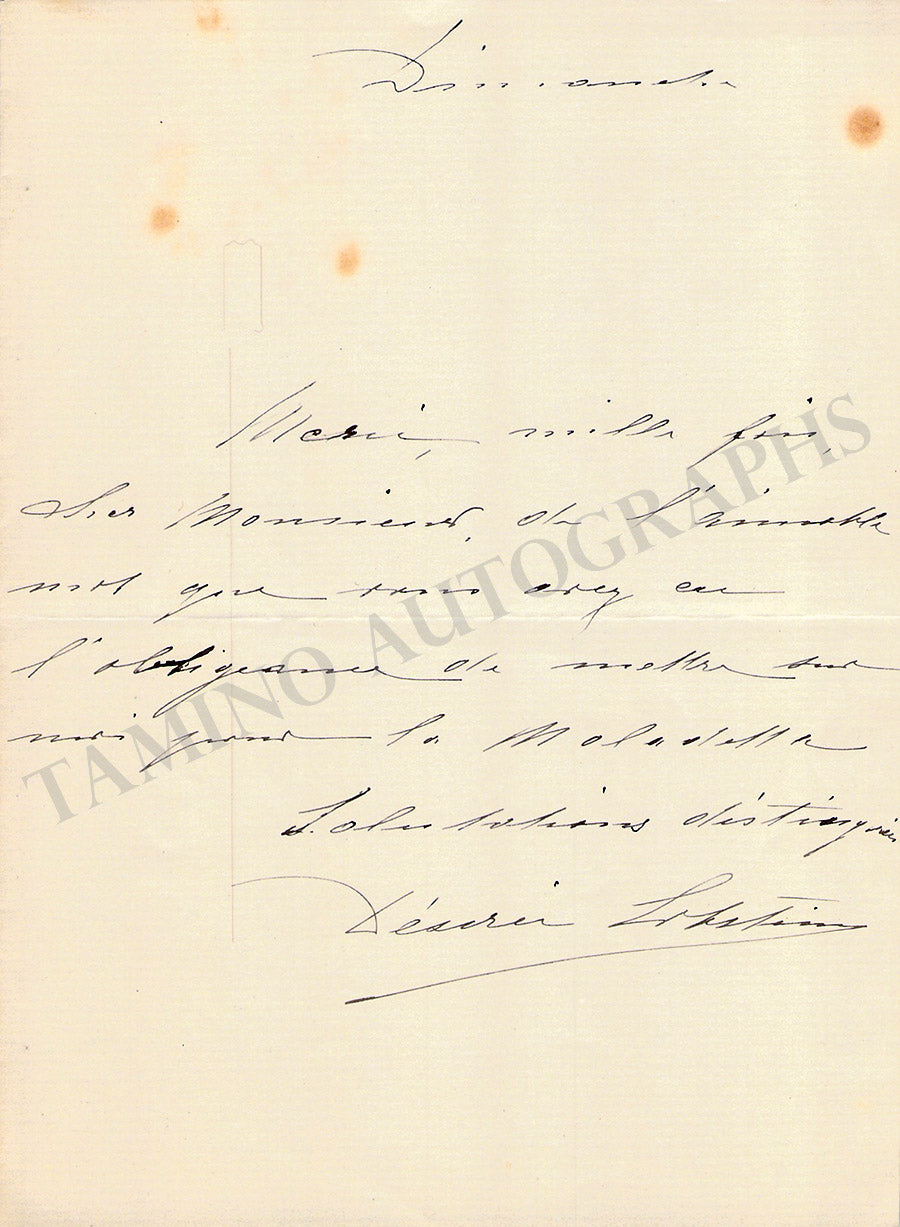 Dimanche
Merci, mille fois,
Cher Monsieur, de l'aimable
mot que vous avez eu
l'obligeance de mettre sur
moi pour la Maladetta
Salutations distinguées
Désirée Lobstein
TAMINO AUTOGRAPHS